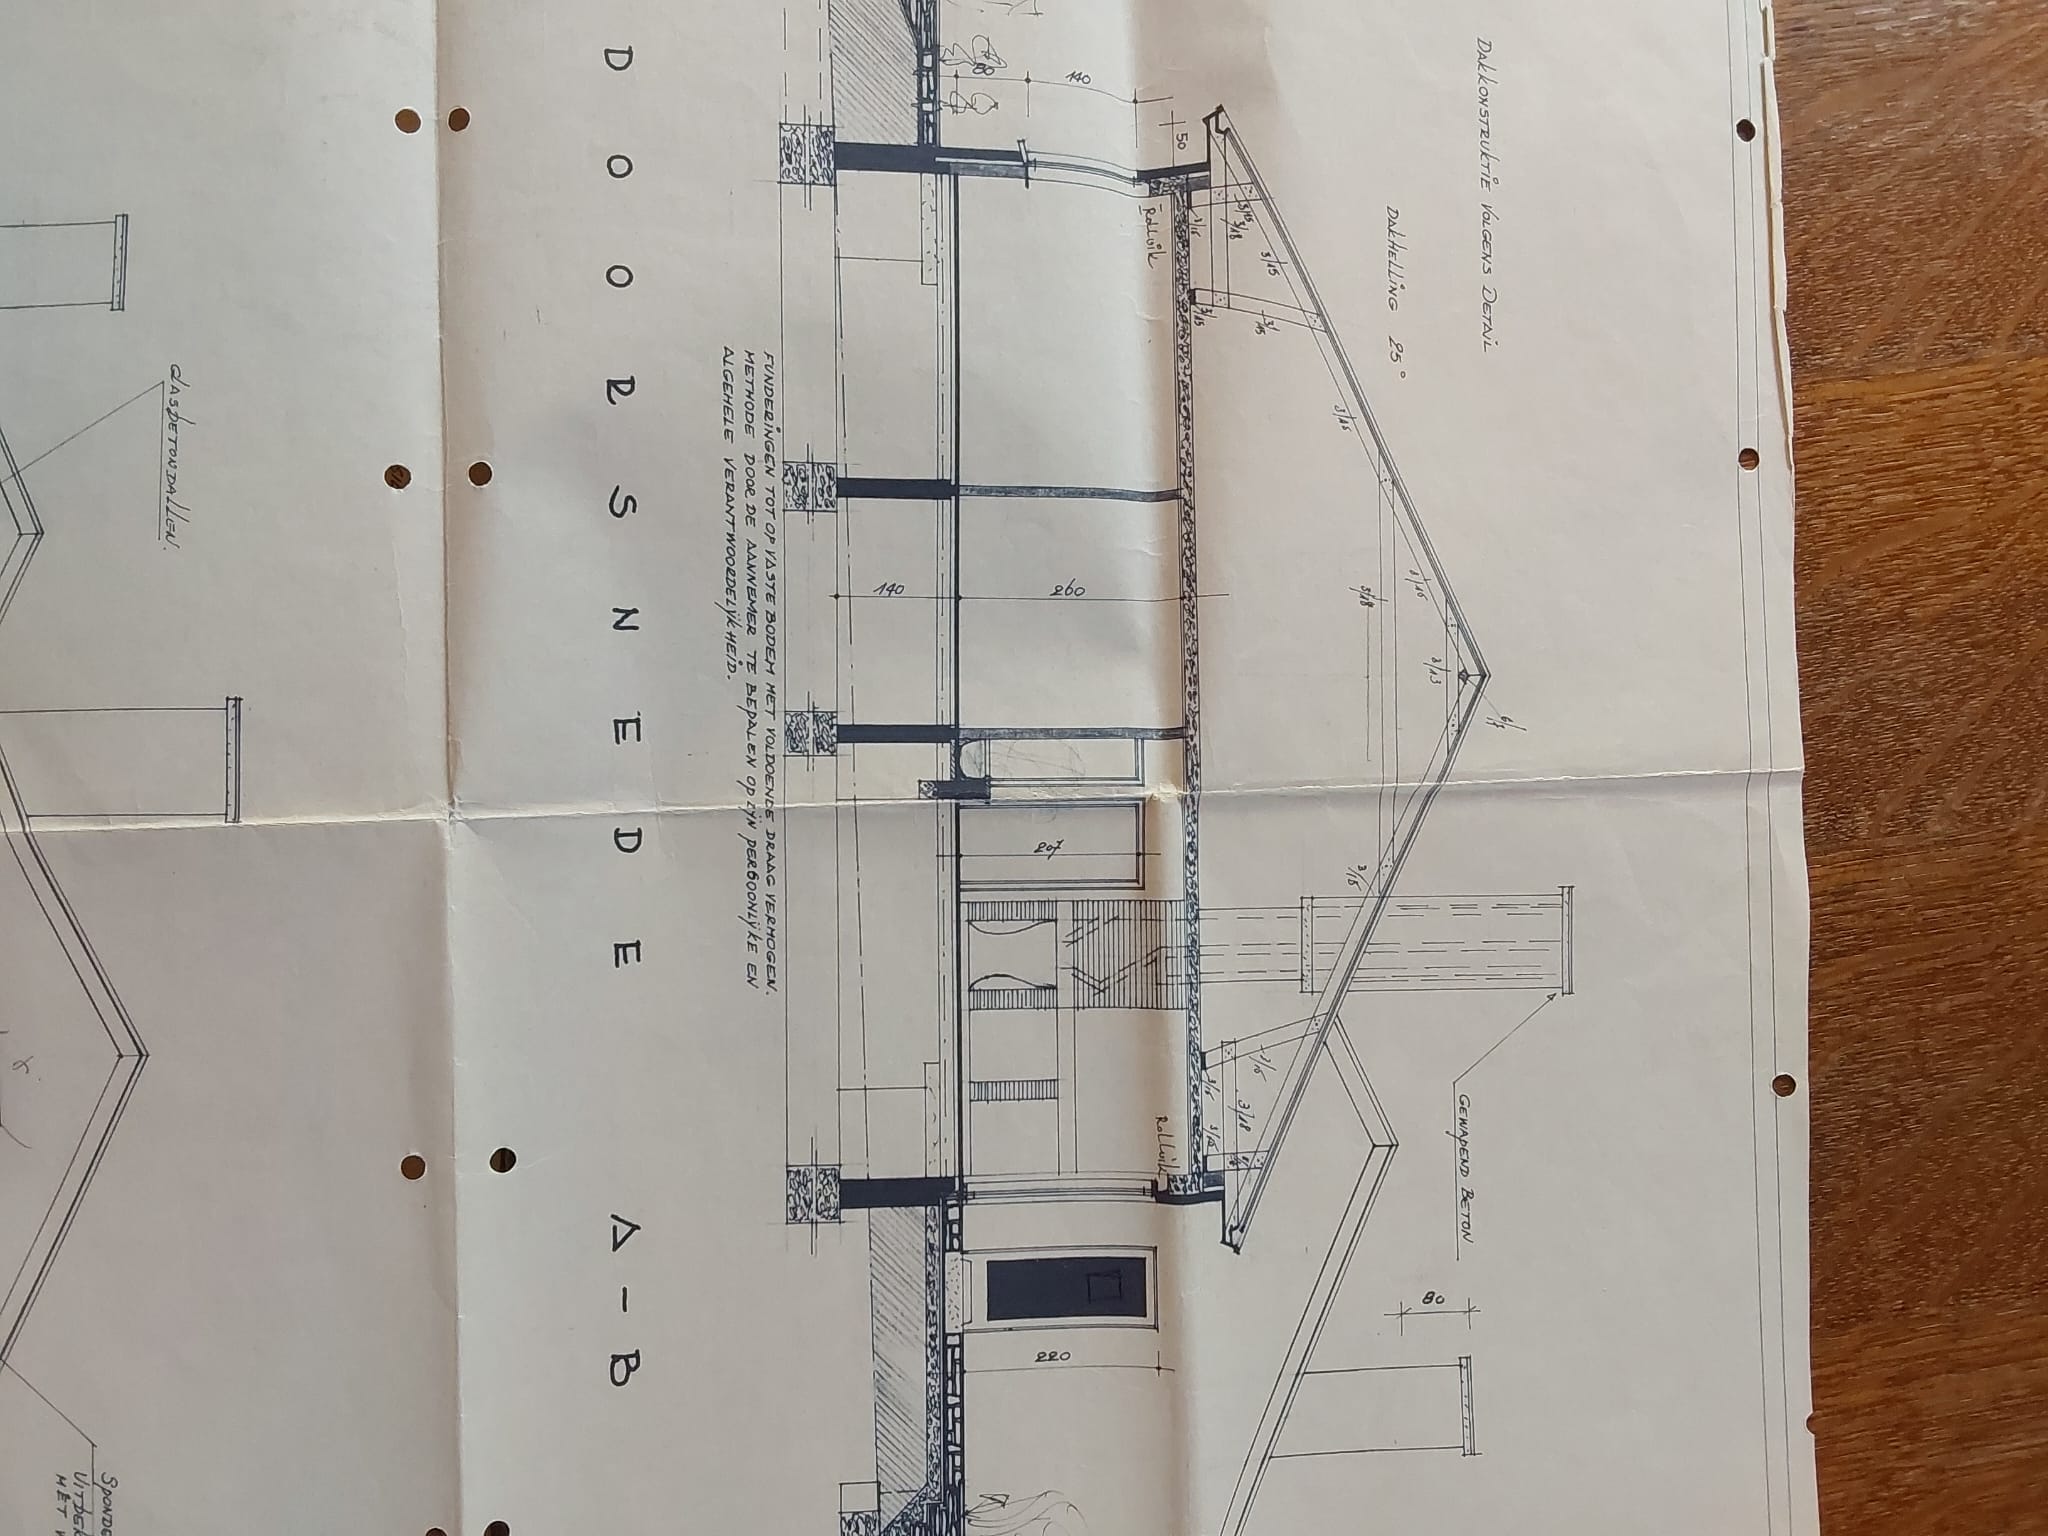 DAKKONSTRUKTIE VOLGENS DETAIL
6/7
GEWAPEND BETON
80
DAKHELLING 25°
3/15
3/13
3/18
3/15
3/15
3/15
3/15
3/15
3/18
3/15
3/18
3/15
3/15
3/15
3/15
50
Rolluik
Rolluik
140
260
207
220
80
140
FUNDERINGEN TOT OP VASTE BODEM MET VOLDOENDE DRAAG VERMOGEN.
METHODE DOOR DE AANNEMER TE BEPALEN OP ZIJN PERSOONLIJKE EN
ALGEHELE VERANTWOORDELIJKHEID.
DOORSNEDE A-B
GLASBETONDALLEN.
SPONDE
UITBEK
MET